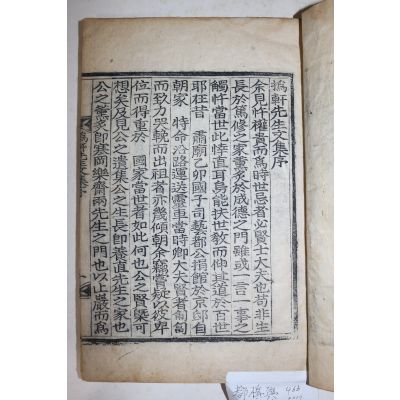 撝軒先生文集序
余見忤權貴而爲時世忌者必賢士大夫也苟非生
長於篤修之家薰炙於成德之門雖或一言一事之
觸忤當世此特悻直耳烏能扶世敎而伸其道於百世
耶在昔 肅廟乙卯國子司藝都公捐館於京邸自
朝家 特命沿路運送靈車當時卿大夫賢者匍匐
而致力哭輓而出祖者亦幾傾朝余竊嘗疑以彼卑
位而得重於 國家當世者如此何也公之賢槩可
想矣及見公之遺集公之生長卽養直先生之家也
公之薰炙卽寒岡樂齋兩先生之門也以上嚴而爲
都